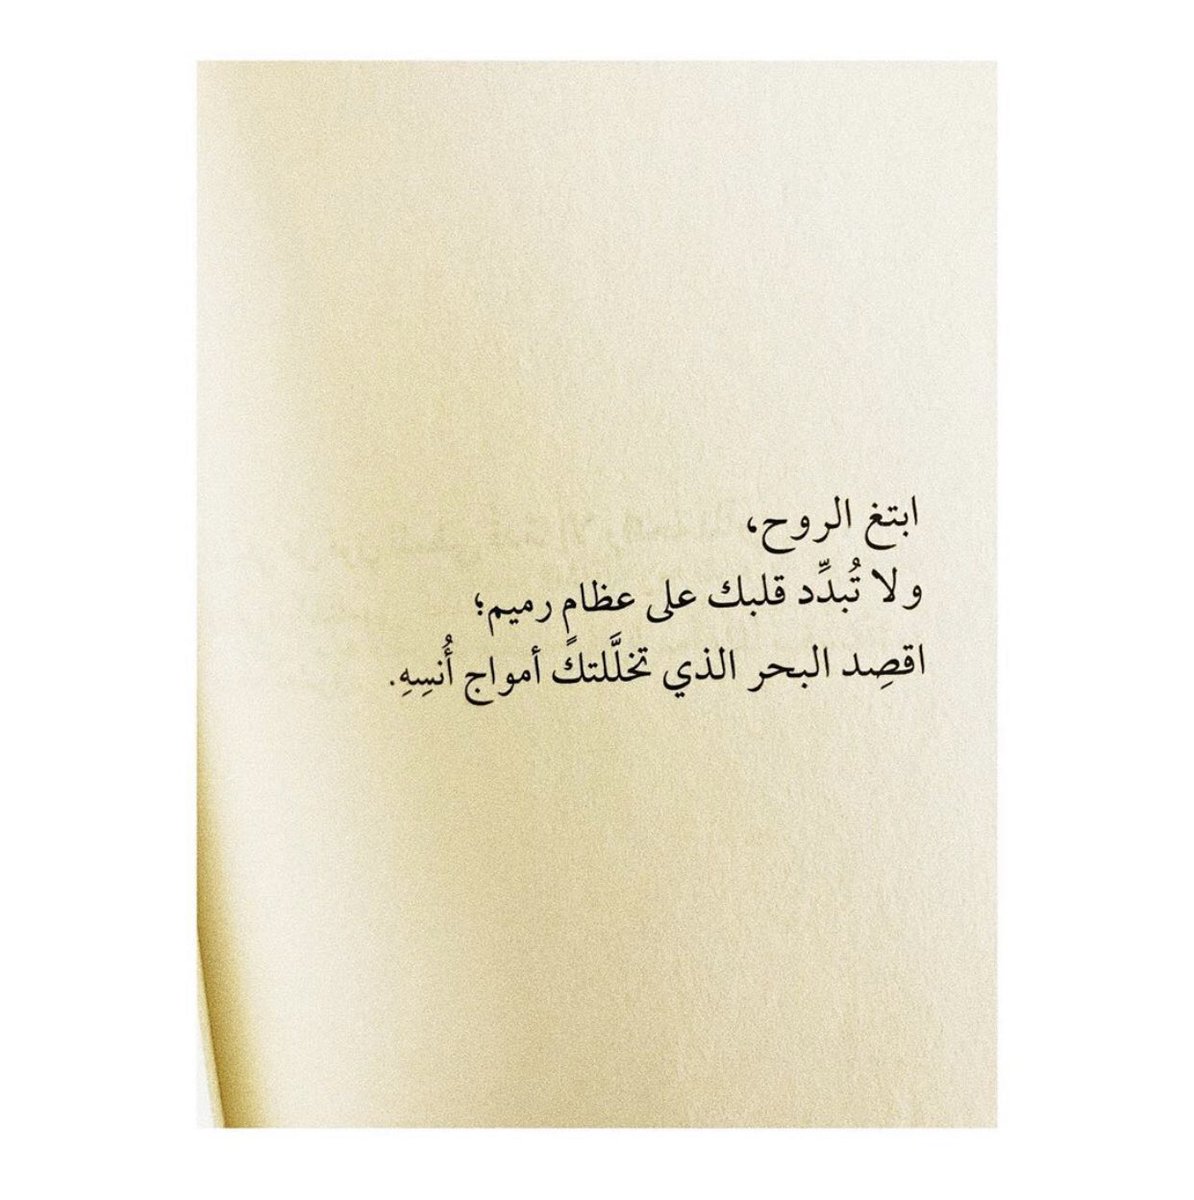 ابتغ الروح،
ولا تُبدِّد قلبك على عظامٍ رميم؛
اقصِد البحر الذي تخلَّلتكَ أمواج أُنسِهِ.